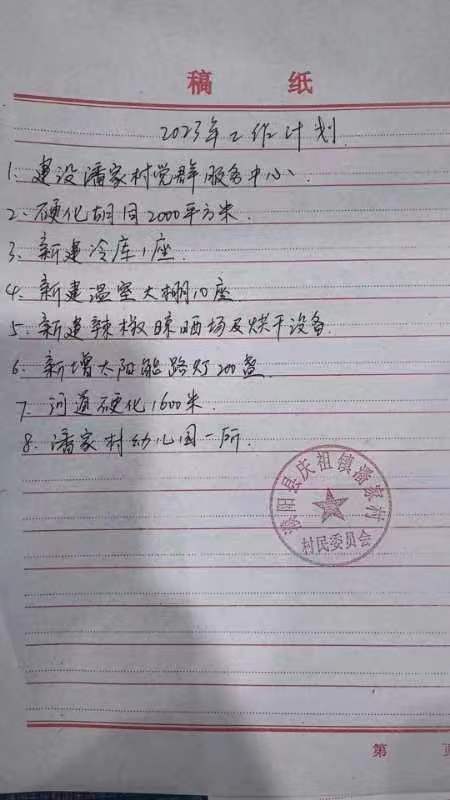 稿 纸
2023年工作计划
1、建设潘家村党群服务中心、
2、硬化胡同2000平方米.
3、新建冷库1座.
4、新建温室大棚10座
5、新建辣椒晾晒场及烘干设备.
6、新增太阳能路灯200盏
7、河道硬化1600米.
8、潘家村幼儿园一所.
濮阳县庆祖镇潘家村
村民委员会
第 页